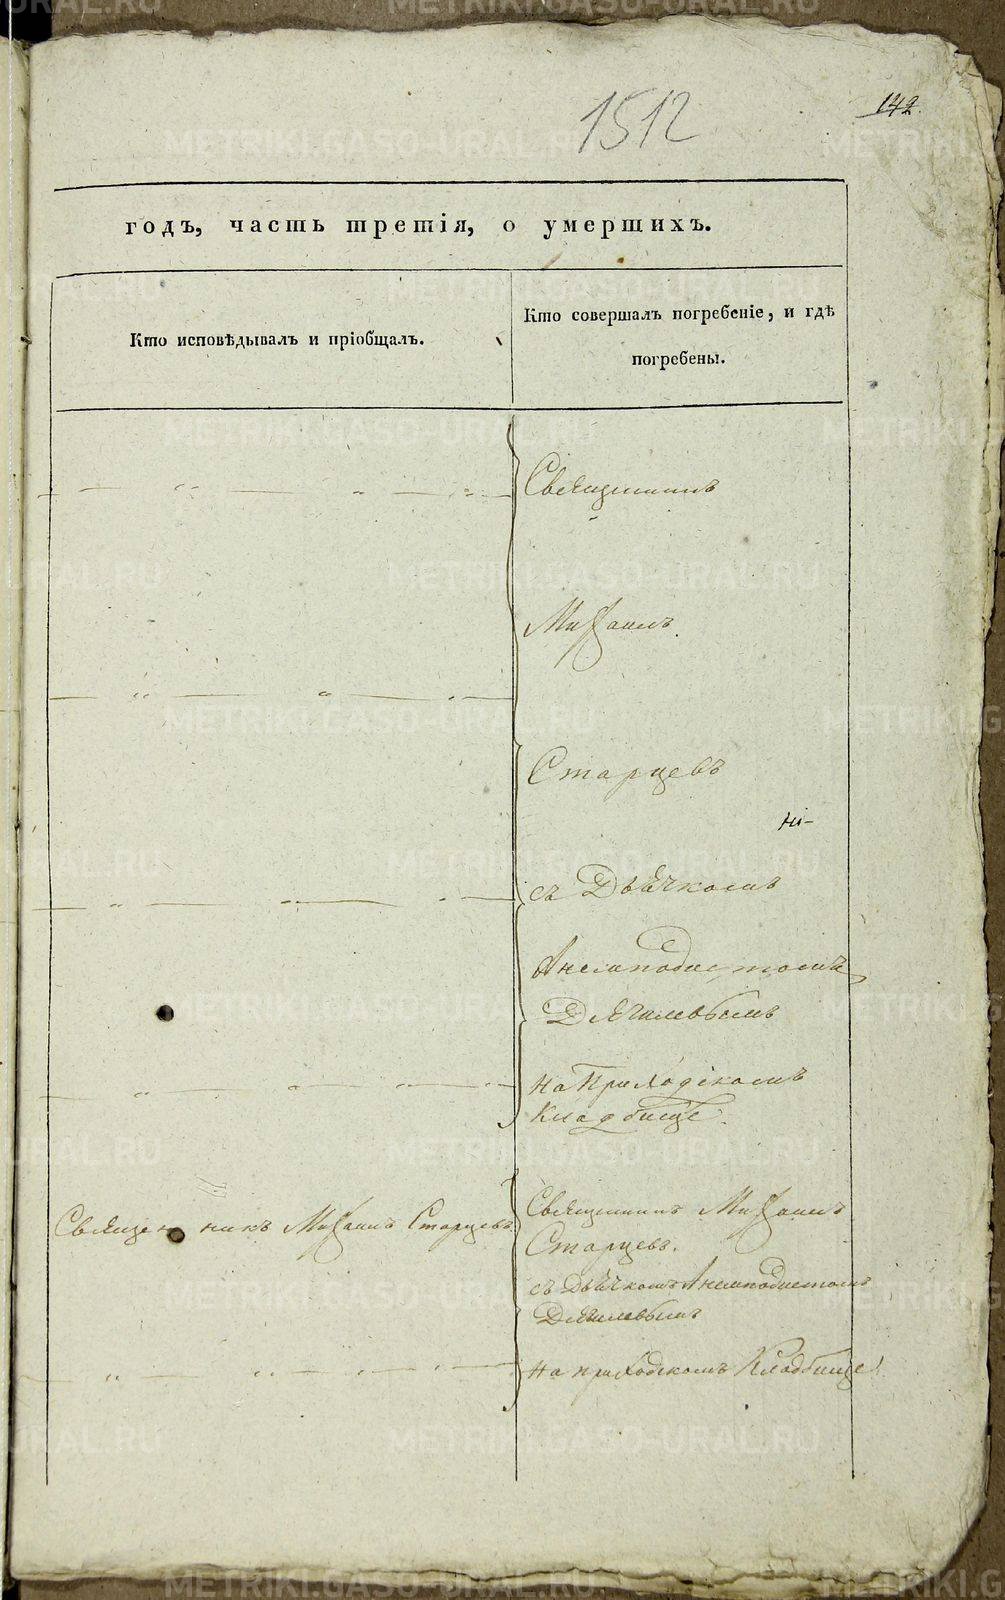 1512
142
годъ, часть третія, о умершихъ.
Кто исповѣдывалъ и пріобщалъ.
Кто совершалъ погребеніе, и гдѣ
погребены.
Священникъ
Михаилъ
Старцевъ
ні-
съ Дьячкомъ
Анемподистомъ
Дягилевымъ
на Приходскомъ
Кладбищѣ.
Священникъ Михаилъ Старцевъ
Священникъ Михаилъ
Старцевъ.
съ Дьячкомъ Анемподистомъ
Дягилевымъ
на приходскомъ Кладбище
METRIKI.GASO-URAL.RU